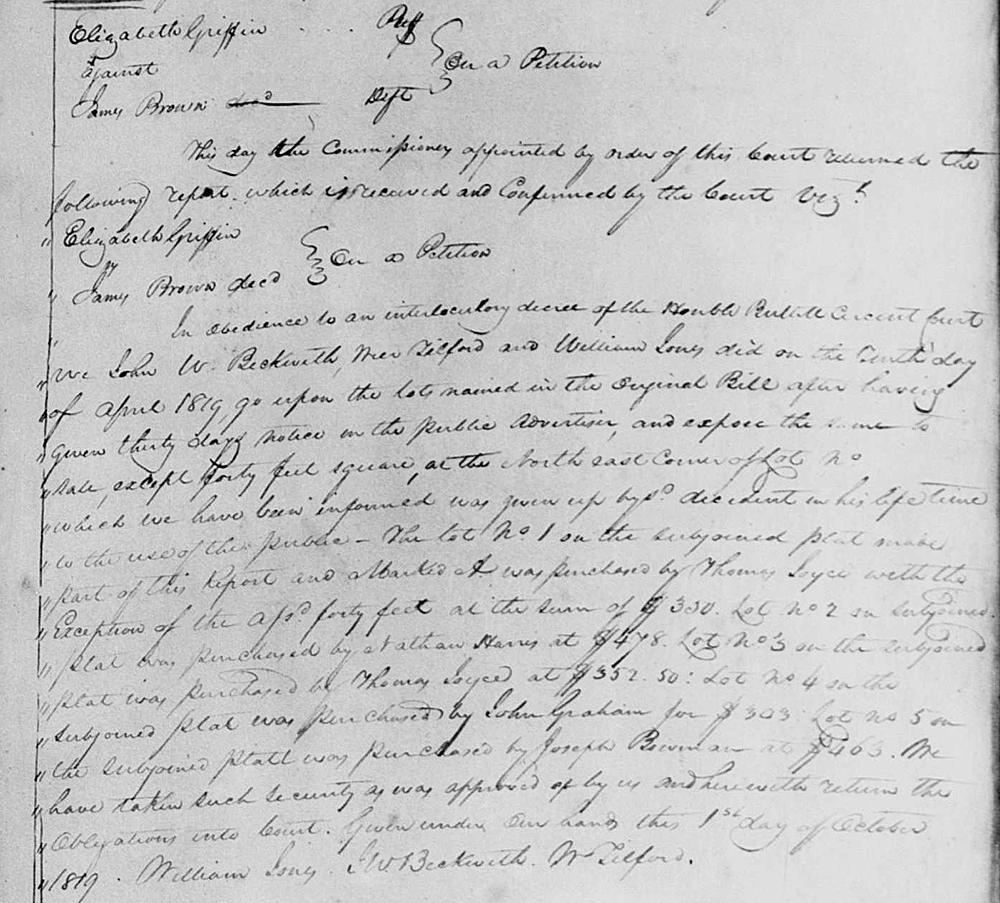 Elizabeth Griffin .... Plff
against } On a Petition
James Brown decd Deft
This day the Commissioners appointed by order of this Court returned the
following report which is received and Confirmed by the Court Vizt.
" Elizabeth Griffin
vs } On a Petition
" James Brown decd
" In obedience to an interlocutory decree of the Honble Circuit Court
" We John W. Beckwith, Wm Telford and William Jones did on the Tenth day
" of April 1819, go upon the lots named in the Original Bill after having
" given thirty days notice in the public Advertiser, and expose the same to
" sale, except forty feet square, at the North east Corner of Lot No
" which we have been informed was given up by sd decedent in his life time
" to the use of the public – The lot No 1 on the subjoined plat made
" part of this Report and Marked A was purchased by Thomas Joyce with the
" Exception of the afsd forty feet at the sum of $ 330. Lot No 2 on subjoined
" plat was purchased by Nathan Harris at $478. Lot No 3 on the subjoined
" plat was purchased by Thomas Joyce at $352.50: Lot No 4 on the
" subjoined plat was purchased by John Graham for $303 Lot No 5 on
" the subjoined platt was purchased by Joseph Bowman at $463. We
" have taken such security as was approved of by us and herewith return the
" Obligations into Court. Given under Our hands this 1st day of October
" 1819. William Jones. J W Beckwith. Wm Telford.